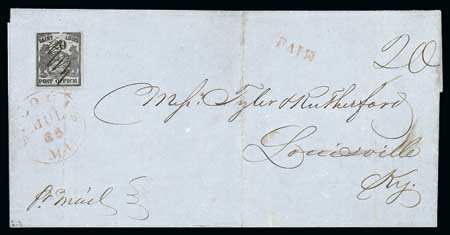 SAINT LOUIS
20
POST OFFICE
PAID
20
Messrs. Tyler & Rutherford
Louisville
Ky.
pr mail